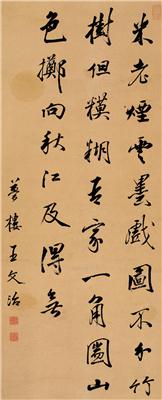 米老煙雲墨戲圖不分竹
樹但糢糊吾家一角圌山
色擲向秋江及得無
夢樓王文治